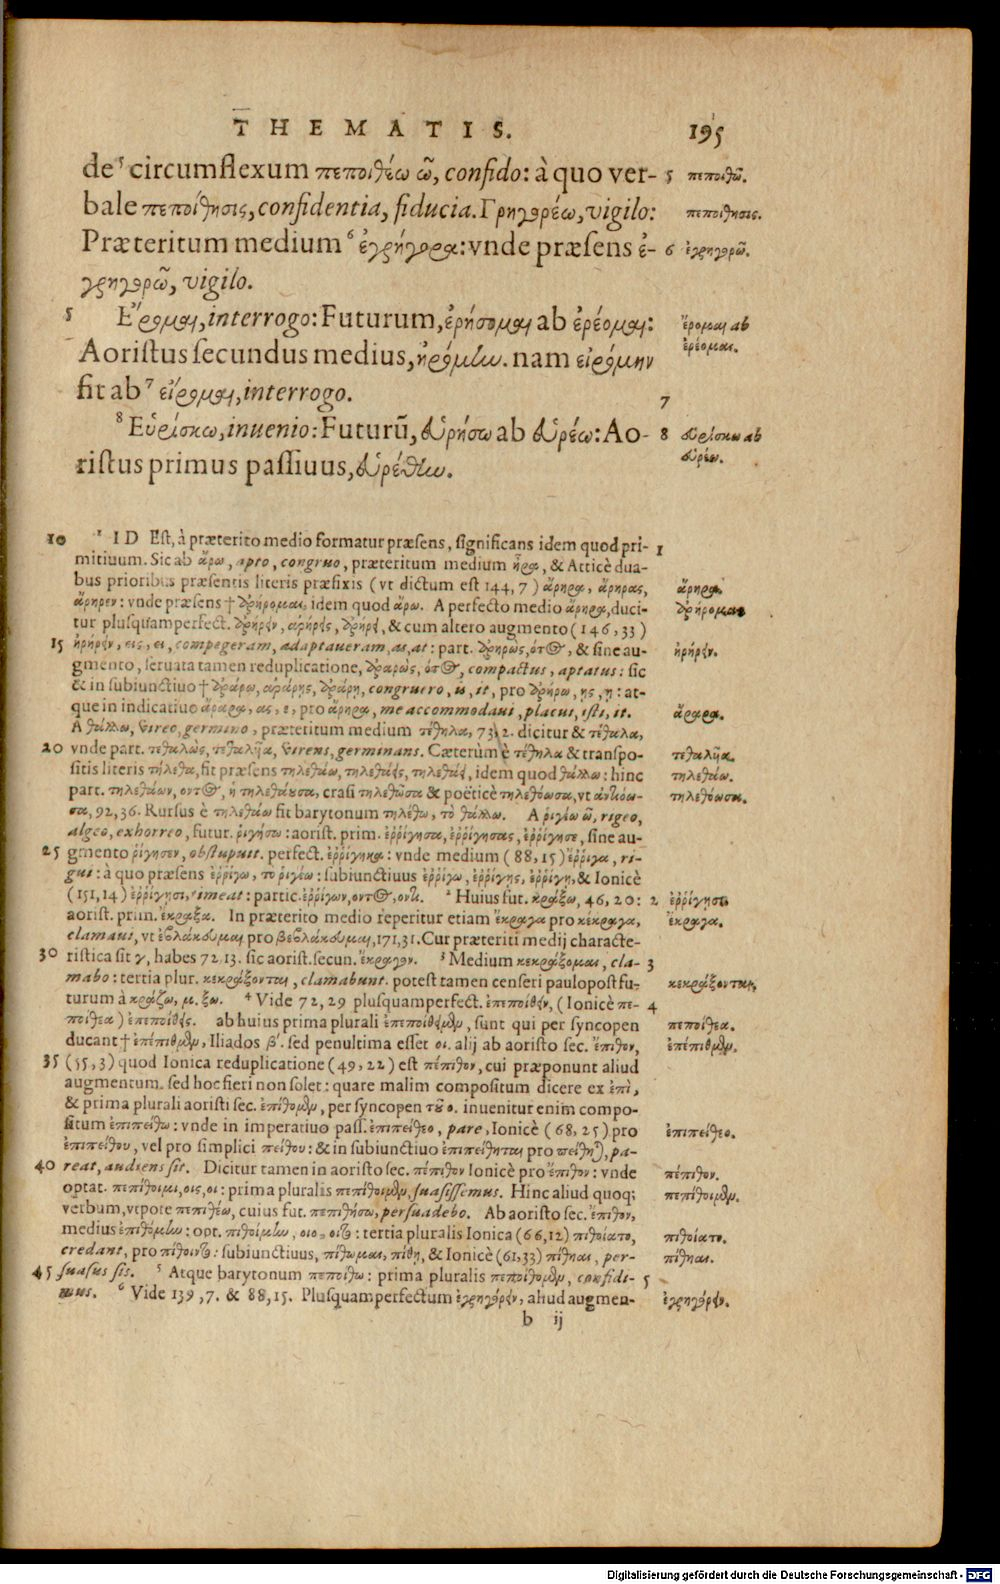 THEMATIS. 195
de⁵ circumflexum πεποιθέω ῶ, confido: à quo ver- 5 πεποιθῶ.
bale πεποίθησις, confidentia, fiducia. Γρηγορέω, vigilo: πεποίθησις.
Præteritum medium ⁶ ἐγρήγορα: vnde præsens ἐ- 6 ἐγρηγορῶ.
γρηγορῶ, vigilo.
5 Ἔρομαι, interrogo: Futurum, ἐρήσομαι ab ἐρέομαι: ἔρομαι ab
Aoristus secundus medius, ἠρόμην. nam εἰρόμην ἐρέομαι.
fit ab ⁷ εἴρομαι, interrogo. 7
⁸ Εὑρίσκω, inuenio: Futurũ, εὑρήσω ab εὑρέω: Ao- 8 εὑρίσκω ab
ristus primus passiuus, εὑρέθην. εὑρέω.
10 ¹ ID Est, à præterito medio formatur præsens, significans idem quod pri- 1
mitiuum. Sic ab ἄρω, apto, congruo, præteritum medium ἦρα, & Atticè dua-
bus prioribus præsentis literis præfixis (vt dictum est 144, 7) ἄρηρα, ἄρηρας, ἄρηρα.
ἄρηρεν: vnde præsens † ἀρήρομαι, idem quod ἄρω. A perfecto medio ἄρηρα, duci- ἀρήρομαι
tur plusquamperfect. ἀρήρειν, ἀρήρεις, ἀρήρει, & cum altero augmento (146, 33)
15 ἠρήρειν, εις, ει, compegeram, adaptaueram, as, at: part. ἀρηρὼς, ότος, & sine au- ἠρήρειν.
gmento, seruata tamen reduplicatione, ἀραρὼς, ότος, compactus, aptatus: sic
& in subiunctiuo † ἀράρω, ἀράρης, ἀράρη, congruero, is, it, pro ἀρήρω, ης, η: at-
que in indicatiuo ἄραρα, ας, ε, pro ἄρηρα, me accommodaui, placui, isti, it. ἄραρα.
A θάλλω, vireo, germino, præteritum medium τέθηλα, 73, 2. dicitur & τέθαλα,
20 vnde part. τεθαλὼς, τεθαλῆα, virens, germinans. Cæterùm è τέθηλα & transpo- τεθαλῆα.
sitis literis τήλεθα, fit præsens τηλεθάω, τηλεθάεις, τηλεθάει, idem quod θάλλω: hinc τηλεθάω.
part. τηλεθάων, οντος, ἡ τηλεθάουσα, crasi τηλεθῶσα & poëticè τηλεθόωσα, vt ἀντιόω- τηλεθόωσα.
σα, 92, 36. Rursus è τηλεθάω fit barytonum τηλέθω, τὸ θάλλω. A ῥιγέω ῶ, rigeo,
algeo, exhorreo, futur. ῥιγήσω: aorist. prim. ἐῤῥίγησα, ἐῤῥίγησας, ἐῤῥίγησε, sine au-
25 gmento ῥίγησεν, obstupuit. perfect. ἐῤῥίγηκα: vnde medium (88, 15) ἔῤῥιγα, ri-
gui: à quo præsens ἐῤῥίγω, το ῥιγέω: subiunctiuus ἐῤῥίγω, ἐῤῥίγης, ἐῤῥίγη, & Ionicè
(151, 14) ἐῤῥίγησι, timeat: partic. ἐῤῥίγων, οντος, οντι. ² Huius fut. κράξω, 46, 20: 2 ἐῤῥίγησι.
aorist. prim. ἔκραξα. In præterito medio reperitur etiam ἔκραγα pro κέκραγα, ἔκραγα.
clamaui, vt ἐβλάκευμαι pro βεβλάκευμαι, 171, 31. Cur præteriti medij characte-
30 ristica sit γ, habes 72, 13. sic aorist. secun. ἔκραγον. ³ Medium κεκράξομαι, cla- 3
mabo: tertia plur. κεκράξονται, clamabunt. potest tamen censeri paulopost fu- κεκράξονται.
turum à κράζω, μ. ξω. ⁴ Vide 72, 29 plusquamperfect. ἐπεποίθειν, (Ionicè πε- 4
ποίθεα) ἐπεποίθεις. ab huius prima plurali ἐπεποίθειμεν, sunt qui per syncopen πεποίθεα.
ducant † ἐπέπιθμεν, Iliados β'. sed penultima esset οι. alij ab aoristo sec. ἔπιθον, ἐπέπιθμεν.
35 (55, 3) quod Ionica reduplicatione (49, 22) est πέπιθον, cui præponunt aliud
augmentum. sed hoc fieri non solet: quare malim compositum dicere ex ἐπὶ,
& prima plurali aoristi sec. ἐπίθομεν, per syncopen τοῦ ο. inuenitur enim compo-
situm ἐπιπείθω: vnde in imperatiuo pass. ἐπιπείθεο, pare, Ionicè (68, 25) pro ἐπιπείθεο.
ἐπιπείθου, vel pro simplici πείθου: & in subiunctiuo ἐπιπείθηται pro πείθηται, pa-
40 reat, audiens sit. Dicitur tamen in aoristo sec. πέπιθον Ionicè pro ἔπιθον: vnde πέπιθον.
optat. πεπίθοιμι, οις, οι: prima pluralis πεπίθοιμεν, suasissemus. Hinc aliud quoq; πεπίθοιμεν.
verbum, vtpote πεπιθέω, cuius fut. πεπιθήσω, persuadebo. Ab aoristo sec. ἔπιθον,
medius ἐπιθόμην: opt. πιθοίμην, οιο, οιτο: tertia pluralis Ionica (66, 12) πιθοίατο, πιθοίατο.
credant, pro πίθοιντο: subiunctiuus, πίθωμαι, πίθη, & Ionicè (61, 33) πίθηαι, per- πίθηαι.
45 suasus sis. ⁵ Atque barytonum πεποίθω: prima pluralis πεποίθομεν, confidi- 5
mus. ⁶ Vide 139, 7. & 88, 15. Plusquamperfectum ἐγρηγόρειν, aliud augmen- ἐγρηγόρειν.
b ij
Digitalisierung gefördert durch die Deutsche Forschungsgemeinschaft - DFG